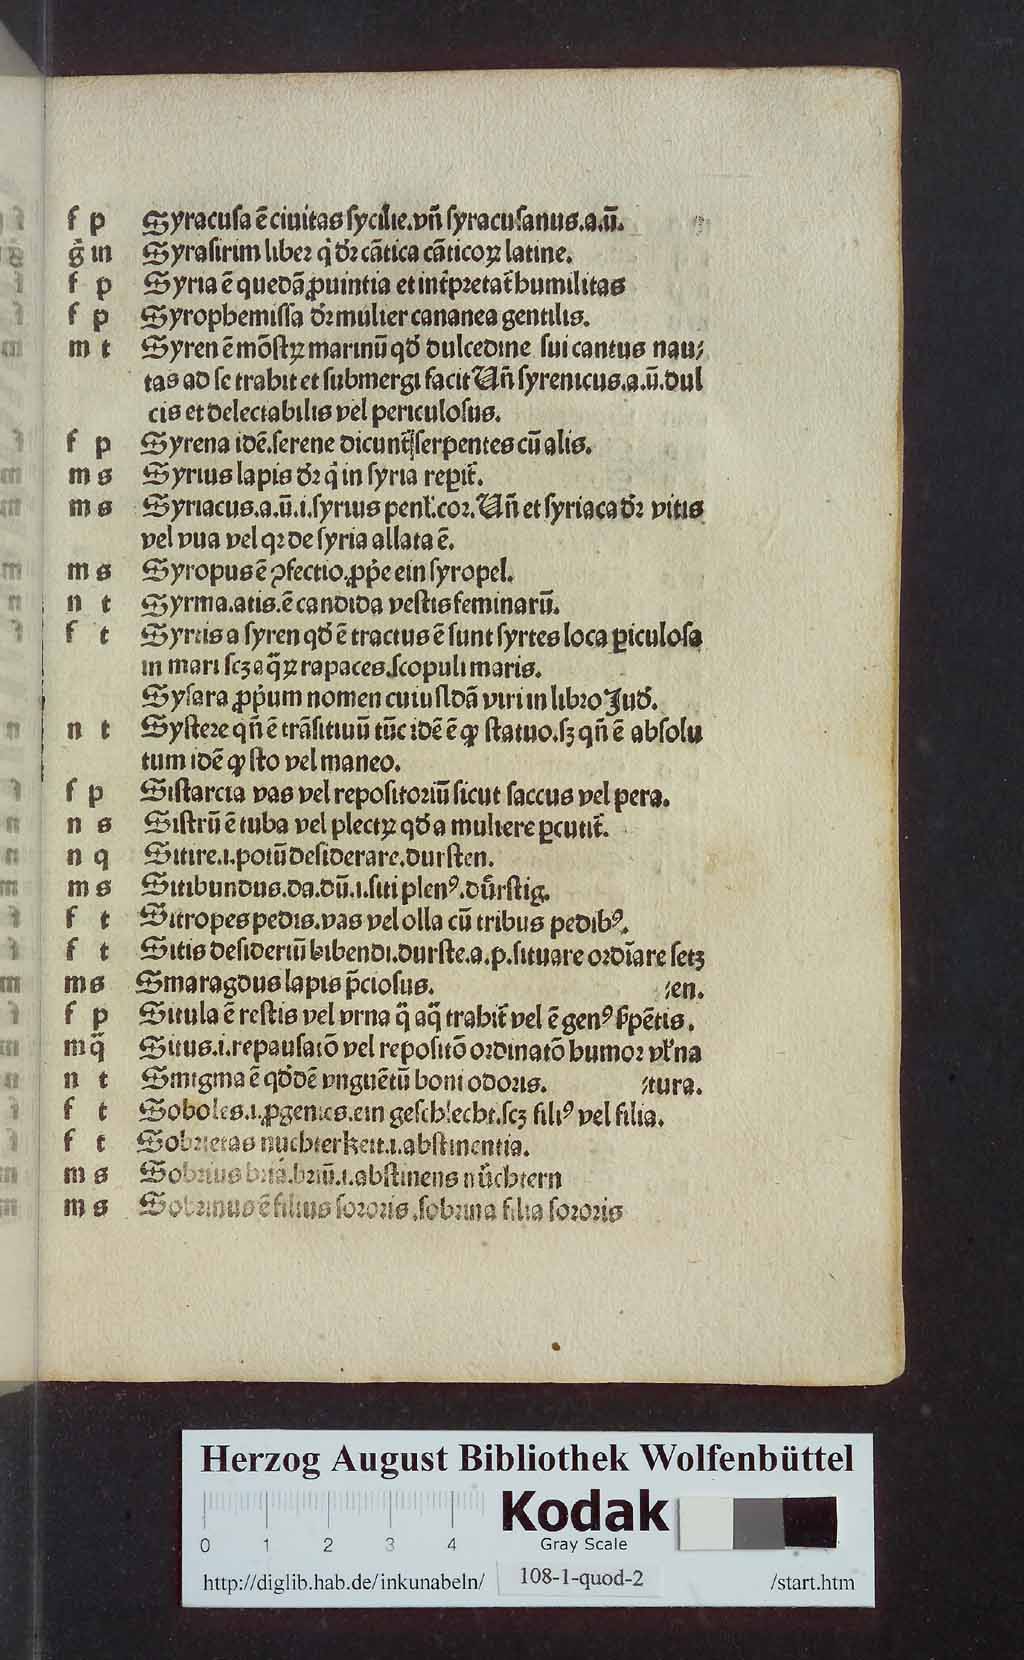 f p Syracusa ē ciuitas sycilie.vñ syracusanus.a.ū.
g̾ in Syrasirim liber q̾ dr̄ cātica cāticoꝝ latine.
f p Syria ē quedā ꝓuintia et int̾pretat̾ humilitas
f p Syrophenissa dr̄ mulier cananea gentilis.
m t Syren ē mōstꝝ marinū qd̾ dulcedine sui cantus nau⸗
tas ad se trahit et submergi facit Vñ syrenicus.a.ū.dul
cis et delectabilis vel periculosus.
f p Syrena idē.serene dicunt̾ serpentes cū alis.
m s Syrius lapis dr̄ q̾ in syria reꝑit̾.
m s Syriacus.a.ū.i.syrius penl̾.cor.Vñ et syriaca dr̄ vitis
vel vua vel qꝛ de syria allata ē.
m s Syropus ē ꝯfectio.ꝓp̾e ein syropel.
n t Syrma.atis.ē candida vestis feminarū.
f t Syrtis a syren qd̾ ē tractus ē sunt syrtes loca ꝑiculosa
in mari scꝫ aq̄ꝝ rapaces.scopuli maris.
Sysara ꝓp̾um nomen cuiusdā viri in libro Jud̾.
n t Systere qñ ē trāsitiuū tūc idē ē ꝙ statuo.sꝫ qñ ē absolu
tum idē ꝙ sto vel maneo.
f p Sistarcia vas vel repositoriū sicut saccus vel pera.
n s Sistrū ē tuba vel plectꝝ qd̾ a muliere ꝑcutit̾.
n q Sitire.i.potū desiderare.dursten.
m s Sitibundus.da.dū.i.siti plenꝰ.dürstig.
f t Sitropes pedis.vas vel olla cū tribus pedibꝰ.
f t Sitis desideriū bibendi.durste.a.p.situare ordīare setz
m s Smaragdus lapis p̄ciosus. ⸗en.
f p Situla ē restis vel vrna q̄ aq̄ trahit̾ vel ē genꝰ ẜpētis.
m q̄ Situs.i.repausatō vel repositō ordinatō humor vl̾ na
n t Smigma ē qd̾dē vnguētū boni odoris. ⸗tura.
f t Soboles.i.ꝓgenies.ein geschlecht.scꝫ filiꝰ vel filia.
f t Sobrietas nuchterkeit.i.abstinentia.
m s Sobrius bria.briū.i.abstinens nüchtern
m s Sobrinus ē filius sororis.sobrina filia sororis
Herzog August Bibliothek Wolfenbüttel
0 1 2 3 4
Kodak
Gray Scale
http://diglib.hab.de/inkunabeln/ 108-1-quod-2 /start.htm